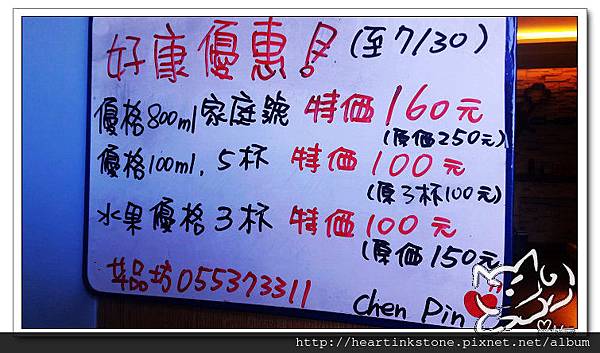 好康優惠! (至7/30)
優格800ml家庭號 特価160元
(原価250元)
優格100ml, 5杯 特価100元
(原3杯100元)
水果優格3杯 特価100元
(原価150元
品坊055373311
Chen Pin
http://heartinkstone.pixnet.net/album